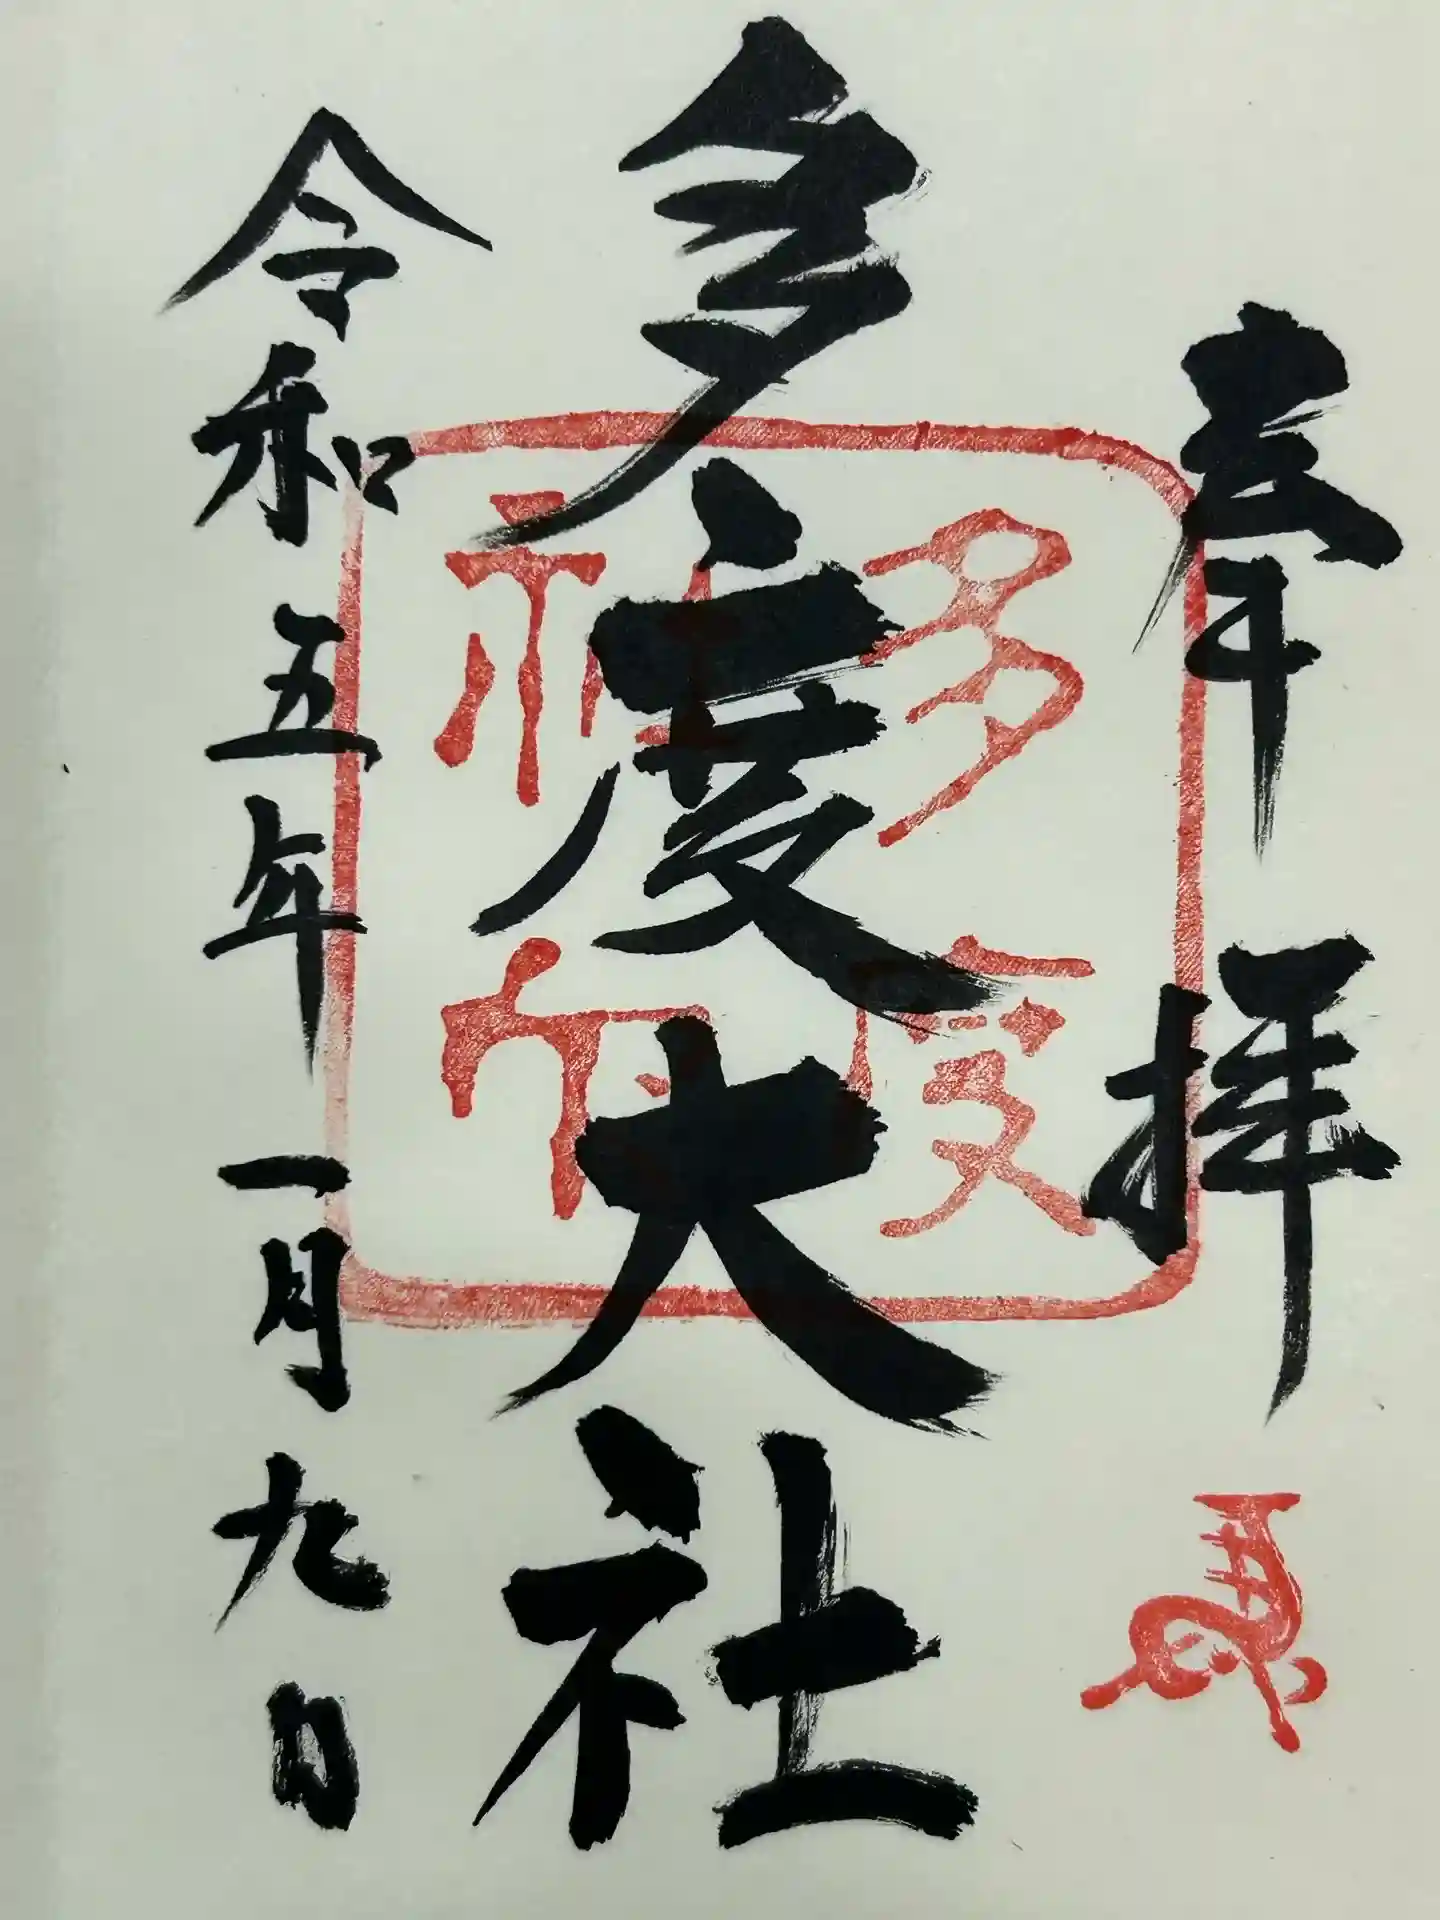 奉拝
多度大社
多度
神社
令和五年一月九日